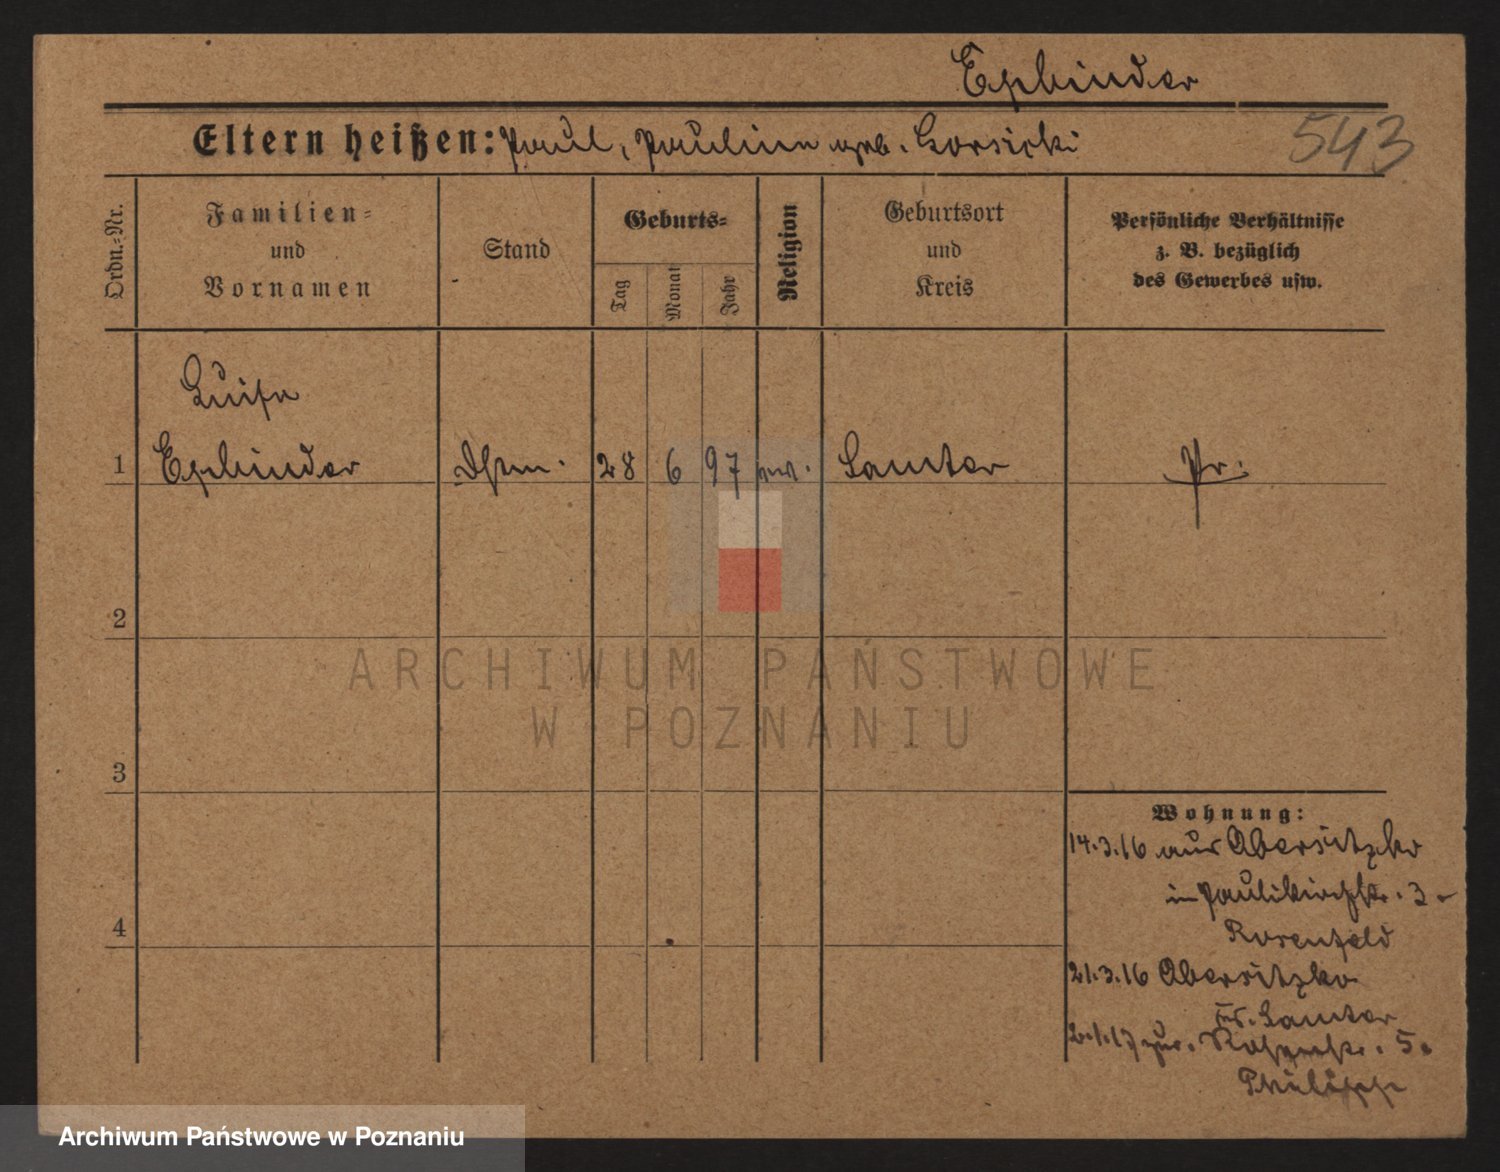 Eybinder
Eltern heißen: Paul, Pauline geb. Gorsicki
543
Ordn.-Nr.
Familien-
und
Vornamen
Stand
Geburts-
Tag
Monat
Jahr
Religion
Geburtsort
und
Kreis
Persönliche Verhältnisse
z. B. bezüglich
des Gewerbes usw.
Luise
1 Eybinder 28 6 97 ev. Samter Pr.
2
ARCHIWUM PAŃSTWOWE
W POZNANIU
3
4
Wohnung:
14.3.16 aus Obersitzko
in Paulikirchstr. 3
Rosenfeld
21.3.16 Obersitzko
Kr. Samter
2.1.17 zur. 5
Philipp
Archiwum Państwowe w Poznaniu